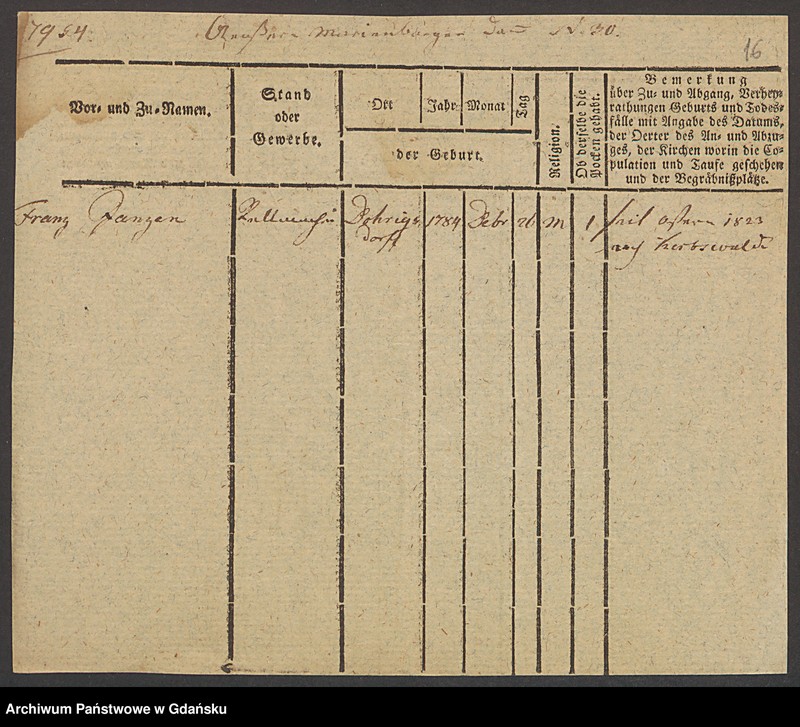 7954. Aeußern Marienburger Damm No. 30.
16
Vor- und Zu-Namen.
Stand
oder
Gewerbe.
Ort
Jahr
Monat
Tag
der Geburt.
Religion.
Ob derselbe die
Pocken gehabt.
Bemerkung
über Zu- und Abgang, Verhey-
rathungen Geburts und Todes-
fälle mit Angabe des Datums,
der Oerter des An- und Abzu-
ges, der Kirchen worin die Co-
pulation und Taufe geschehen
und der Begräbnißplätze.
Franz Janzen
1784
Febr
26
M
1
seit Ostern 1823
nach Kerbswalde
dorff
Archiwum Państwowe w Gdańsku